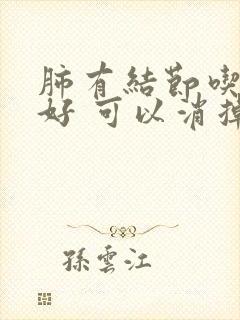 肺有結節喫
好 可以消掉
孫雲江